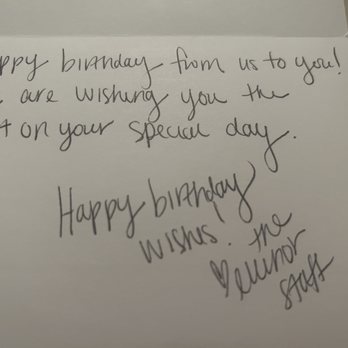 ppy birthday from us to you!
are wishing you the
t on your special day.
Happy birthday
wishes! the
♡ ellinor
staff